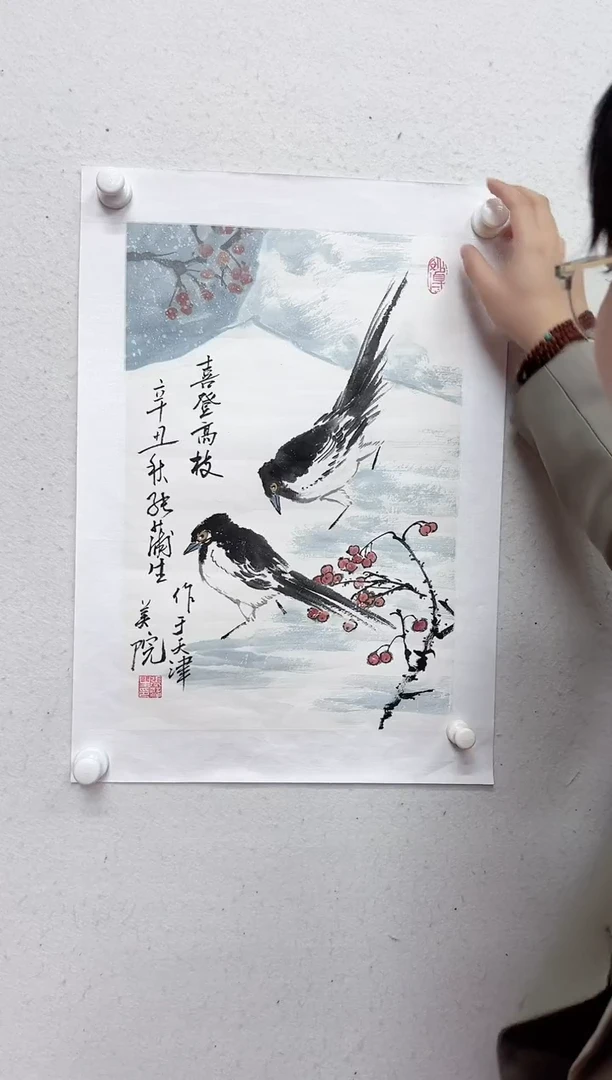 喜登高枝
辛丑秋張蒲生
作于天津
美院